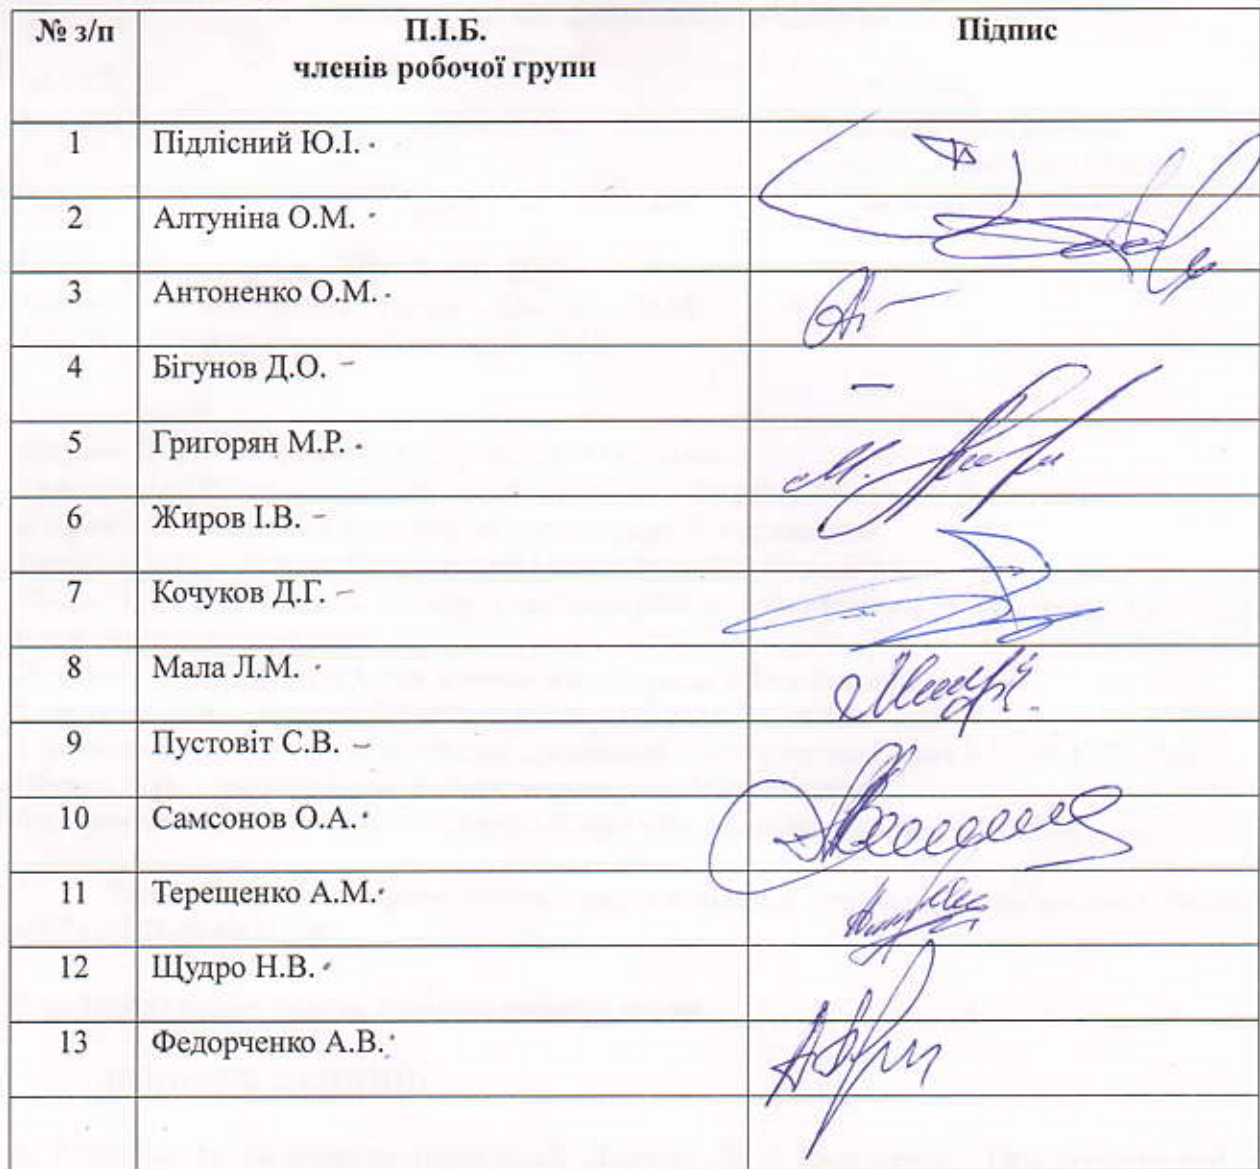 № з/п П.І.Б. Підпис
членів робочої групи
1 Підлісний Ю.І.
2 Алтуніна О.М.
3 Антоненко О.М.
4 Бігунов Д.О. –
5 Григорян М.Р.
6 Жиров І.В. –
7 Кочуков Д.Г. –
8 Мала Л.М.
9 Пустовіт С.В. –
10 Самсонов О.А.
11 Терещенко А.М.
12 Щудро Н.В.
13 Федорченко А.В.